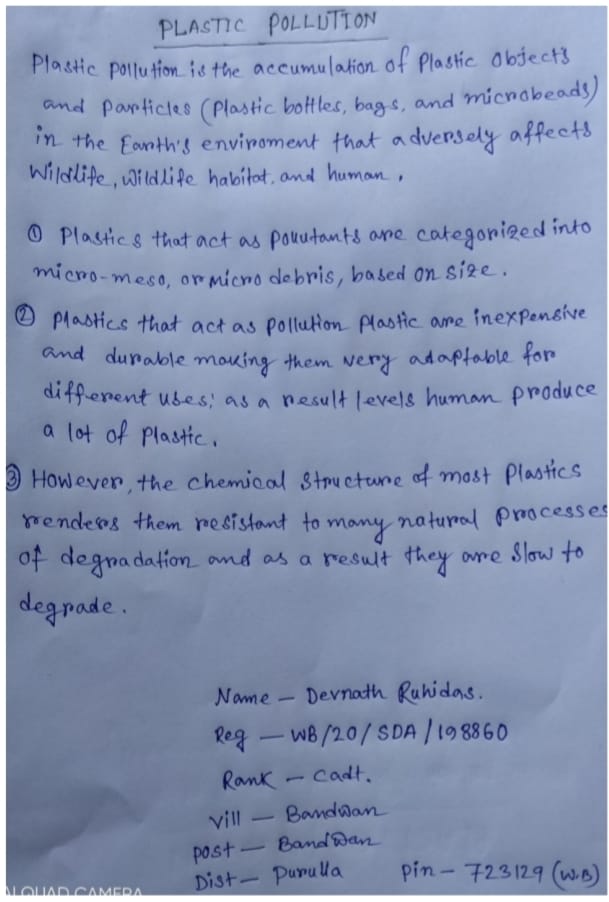 PLASTIC POLLUTION
Plastic pollution is the accumulation of Plastic Objects
and particles (Plastic bottles, bags, and microbeads)
in the Earth's enviroment that adversely affects
Wildlife, Wildlife habitat, and human.
① Plastics that act as pollutants are categorized into
micro-meso, or micro debris, based on size.
② Plastics that act as pollution Plastic are inexpensive
and durable making them very adaptable for
different uses; as a result levels human produce
a lot of plastic.
③ However, the chemical structure of most Plastics
renders them resistant to many natural processes
of degradation and as a result they are slow to
degrade.
Name - Devnath Ruhidas.
Reg - WB/20/SDA/198860
Rank - Cadt.
Vill - Bandwan
post - Bandwan
Dist - Purulla Pin - 723129 (W.B)
QUAD CAMERA